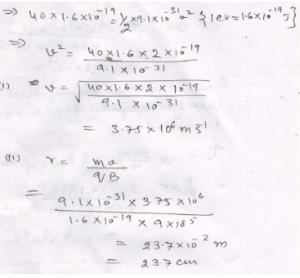 ⇒ 40×1.6×10⁻¹⁹ = 1/2 × 9.1×10⁻³¹ v² {1ev = 1.6×10⁻¹⁹ J}
⇒
v² = 40×1.6×2×10⁻¹⁹ / 9.1×10⁻³¹
(1) ⇒ v = √(40×1.6×2×10⁻¹⁹ / 9.1×10⁻³¹)
= 3.75×10⁶ ms⁻¹
(11) r = mv / qB
= 9.1×10⁻³¹ × 3.75×10⁶ / 1.6×10⁻¹⁹ × 9×10⁻⁵
= 23.7×10⁻² m
= 23.7 cm